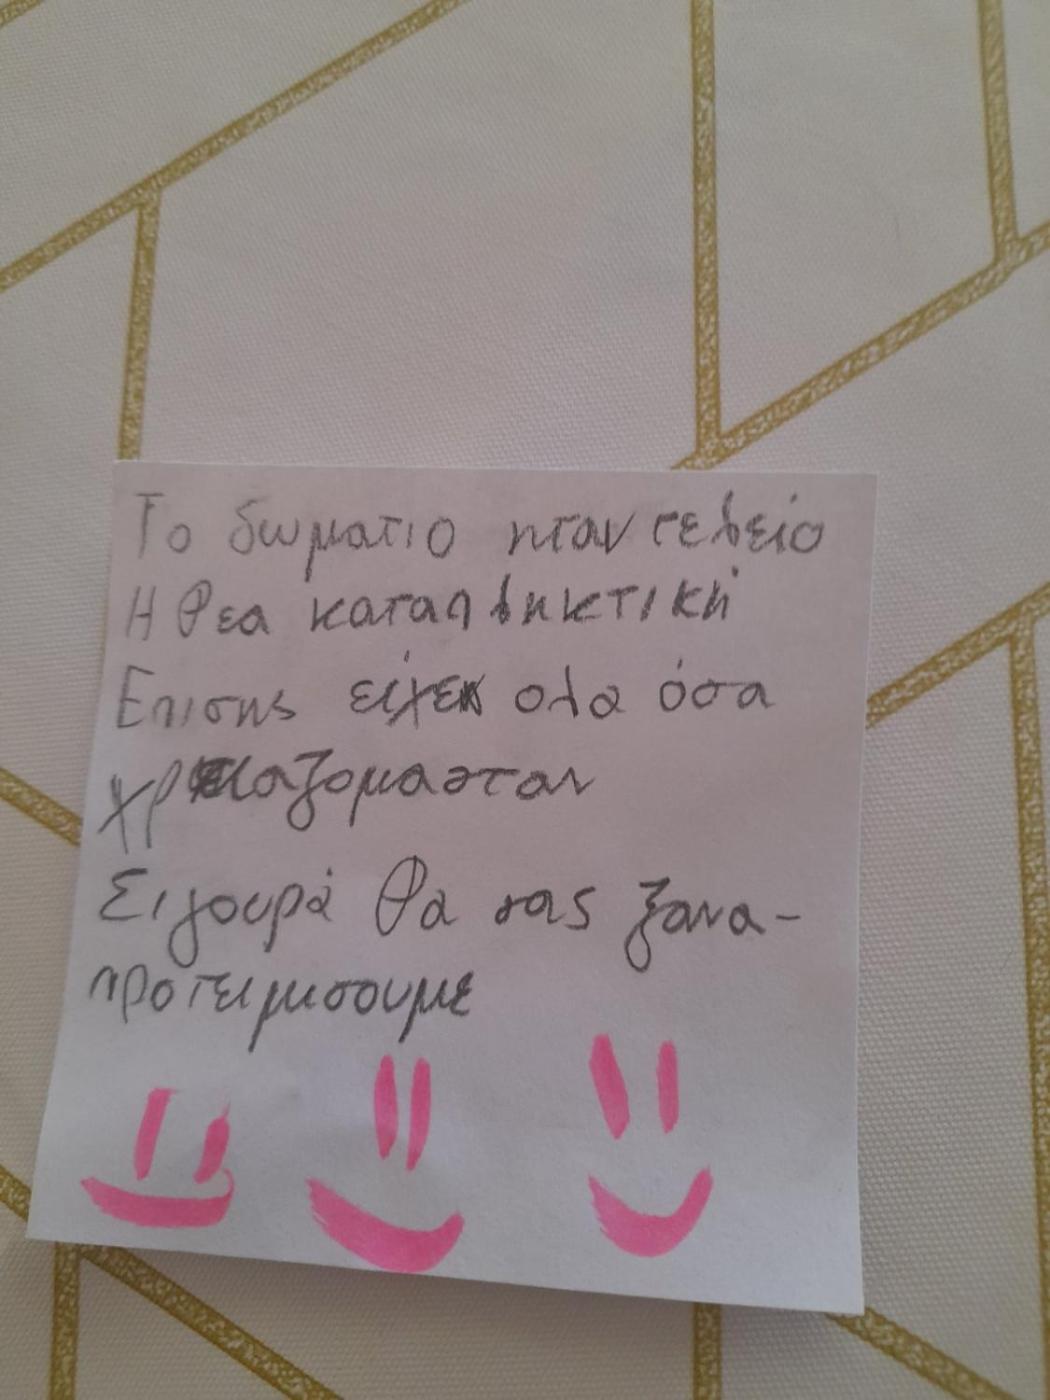 Το δωματιο ηταν τελειο
Η θεα καταπληκτική
Επισης είχε ολα όσα
χρειαζομασταν
Σιγουρά θα σας ξανα-
προτειμισουμε